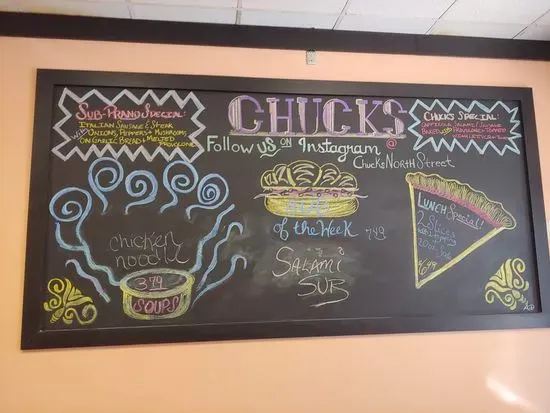 SUB-PRANO SPECIAL:
ITALIAN SAUSAGE & STEAK
WITH ONIONS, PEPPERS & MUSHROOMS
ON GARLIC BREAD & MELTED
PROVOLONE
CHUCKS
Follow us on Instagram
@
CHUCKSNORTHSTREET
CHUCKS SPECIAL:
CAPICOLA, SALAMI, SAUSAGE
BAKED PROVOLONE & TOPPED
chicken
noodle
379
SOUPS
SUB
of the WEEK 749
SALAMI
SUB
LUNCH Special!
2 Slices
20oz
6.49